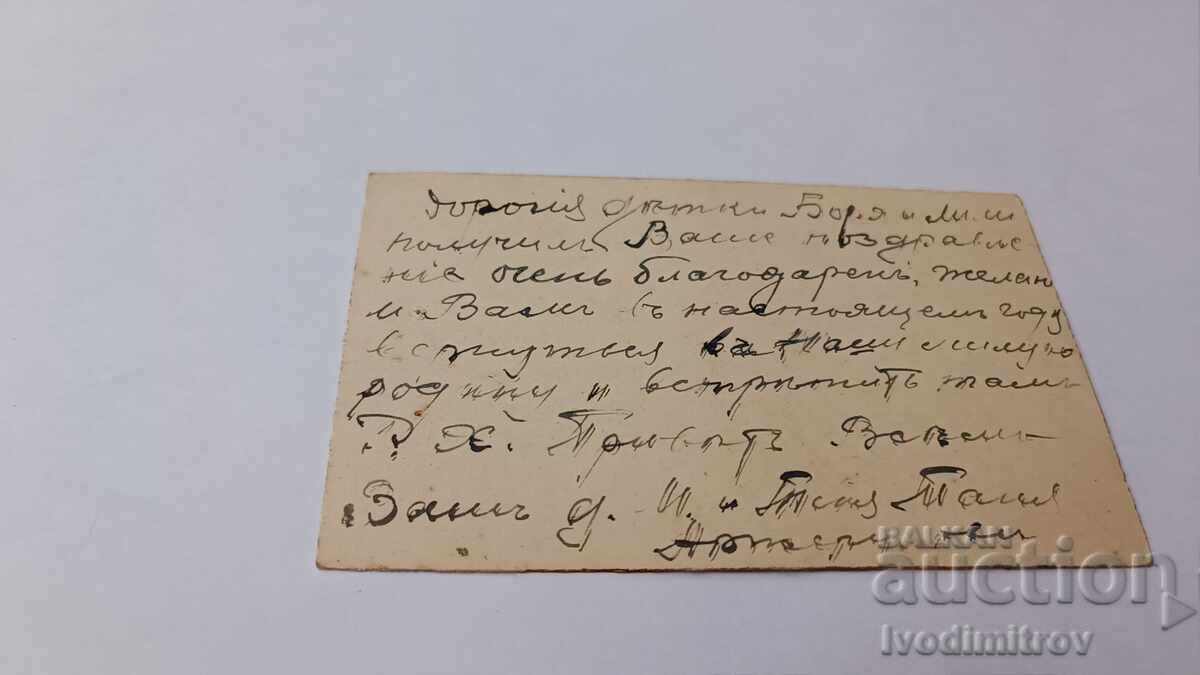 Дорогія дѣтки Боря и Мили
получилъ Ваше поздравле
ніе очень благодаренъ, желаю
и Вамъ въ настоящемъ году
вернуться въ Нашу милую
родину и встрѣтить тамъ
Р. Х. Привѣтъ Всѣмъ
Вашъ д. И. и Тетя Таня
BALKAN
auction
Ivodimitrov